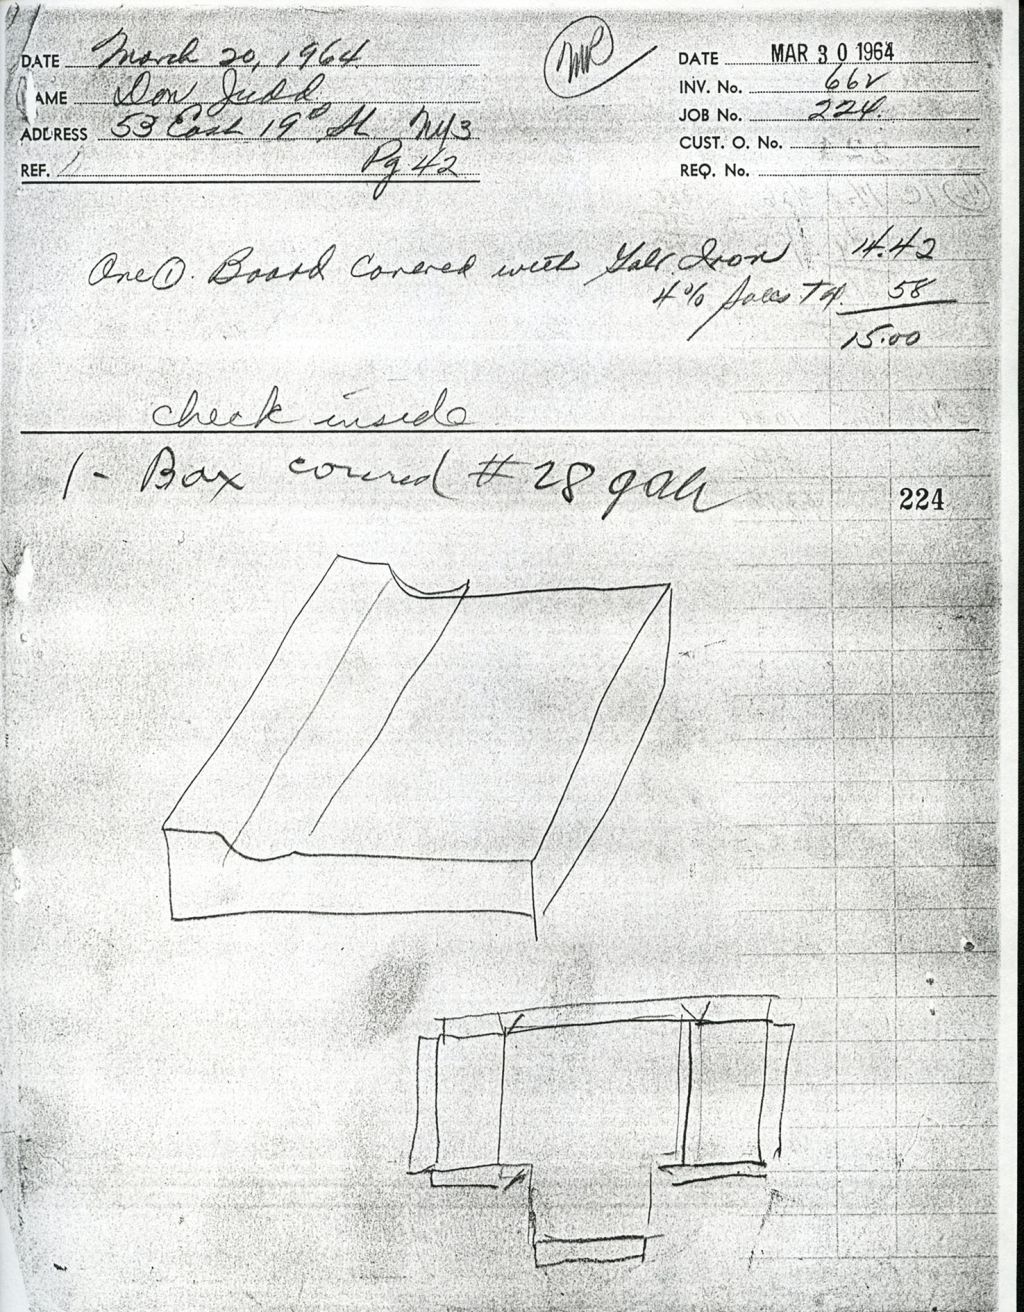 DATE March 20, 1964
NAME Don Judd
ADDRESS 53 East 19th St NY3
REF. Pg 42
MR
DATE MAR 30 1964
INV. No. 662
JOB No. 224.
CUST. O. No.
REQ. No.
One ①. Board Covered with Galv. Iron 14.42
4% Sales Tax 58
15.00
check inside
1 - Box covered # 28 galv
224